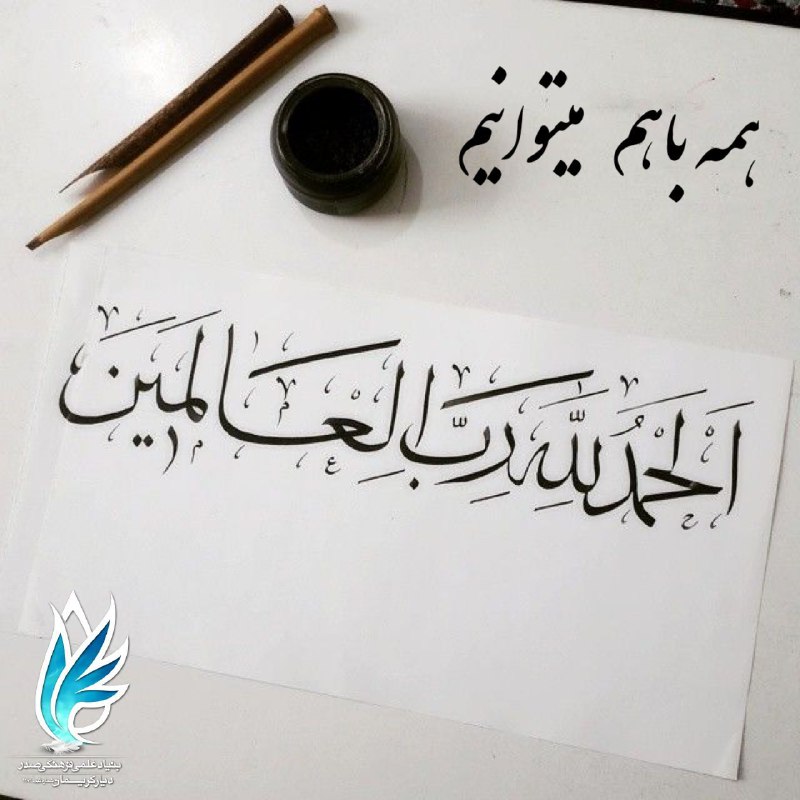 همه باهم میتوانیم
اَلْحَمْدُ لِلّهِ رَبِّ الْعَالَمینَ
بنیاد علمی فرهنگی صدر
دیار کریمان